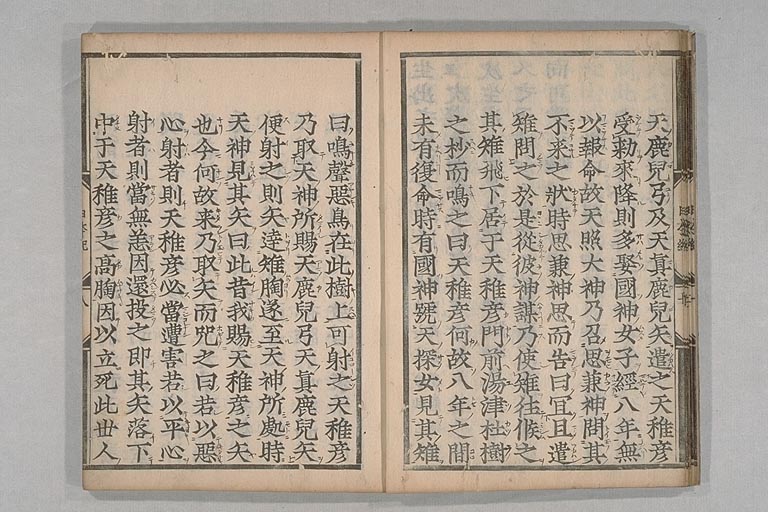 天鹿兒弓及天眞鹿兒矢遣之天稚彦
受勅來降則多娶國神女子經八年無
以報命故天照大神乃召思兼神問其
不来之狀時思兼神思而告曰宜且遣
雉問之於是從彼神謀乃使雉往候之
其雉飛下居于天稚彦門前湯津杜樹
之杪而鳴之曰天稚彦何故八年之間
未有復命時有國神號天探女見其雉
曰鳴聲惡鳥在此樹上可射之天稚彦
乃取天神所賜天鹿兒弓天眞鹿兒矢
便射之則矢達雉胸遂至天神所處時
天神見其矢曰此昔我賜天稚彦之矢
也今何故来乃取矢而呪之曰若以惡
心射者則天稚彦必當遭害若以平心
射者則當無恙因還投之即其矢落下
中于天稚彦之高胸因以立死此世人